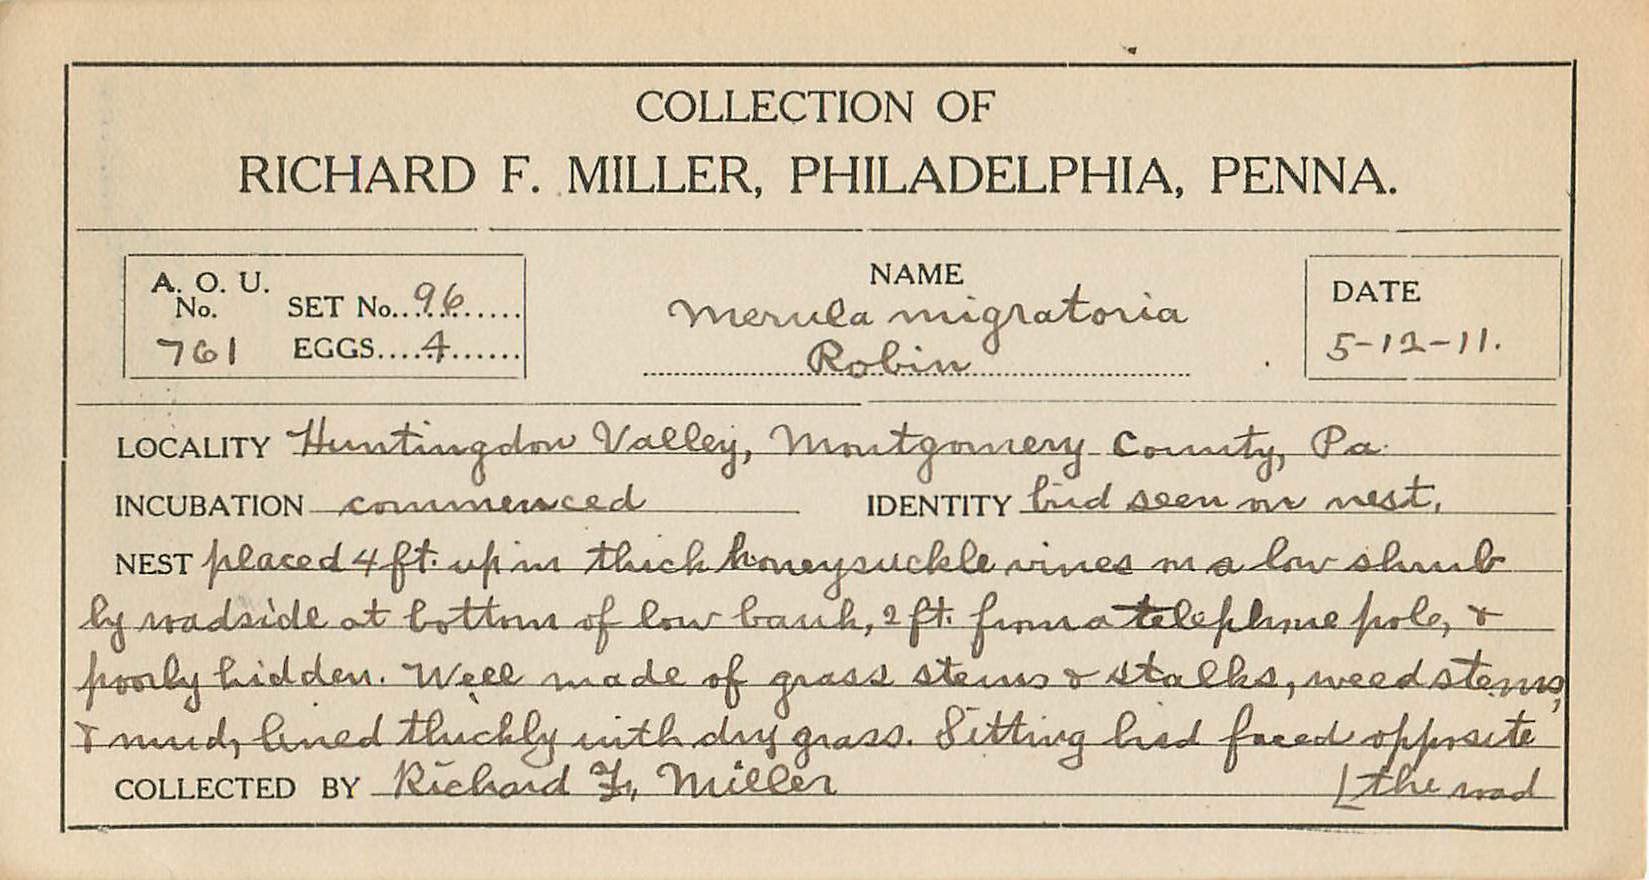 COLLECTION OF
RICHARD F. MILLER, PHILADELPHIA, PENNA.
A. O. U. No. 761
SET No. 96
EGGS 4
NAME
Merula migratoria
Robin
DATE
5-12-11.
LOCALITY Huntingdon Valley, Montgomery County, Pa.
INCUBATION commenced IDENTITY bird seen on nest.
NEST placed 4 ft. up in thick honeysuckle vines in a low shrub
by roadside at bottom of low bank, 2 ft. from a telephone pole, &
poorly hidden. Well made of grass stems & stalks, weed stems,
& mud, lined thickly with dry grass. Sitting bird faced opposite
COLLECTED BY Richard F. Miller [the road